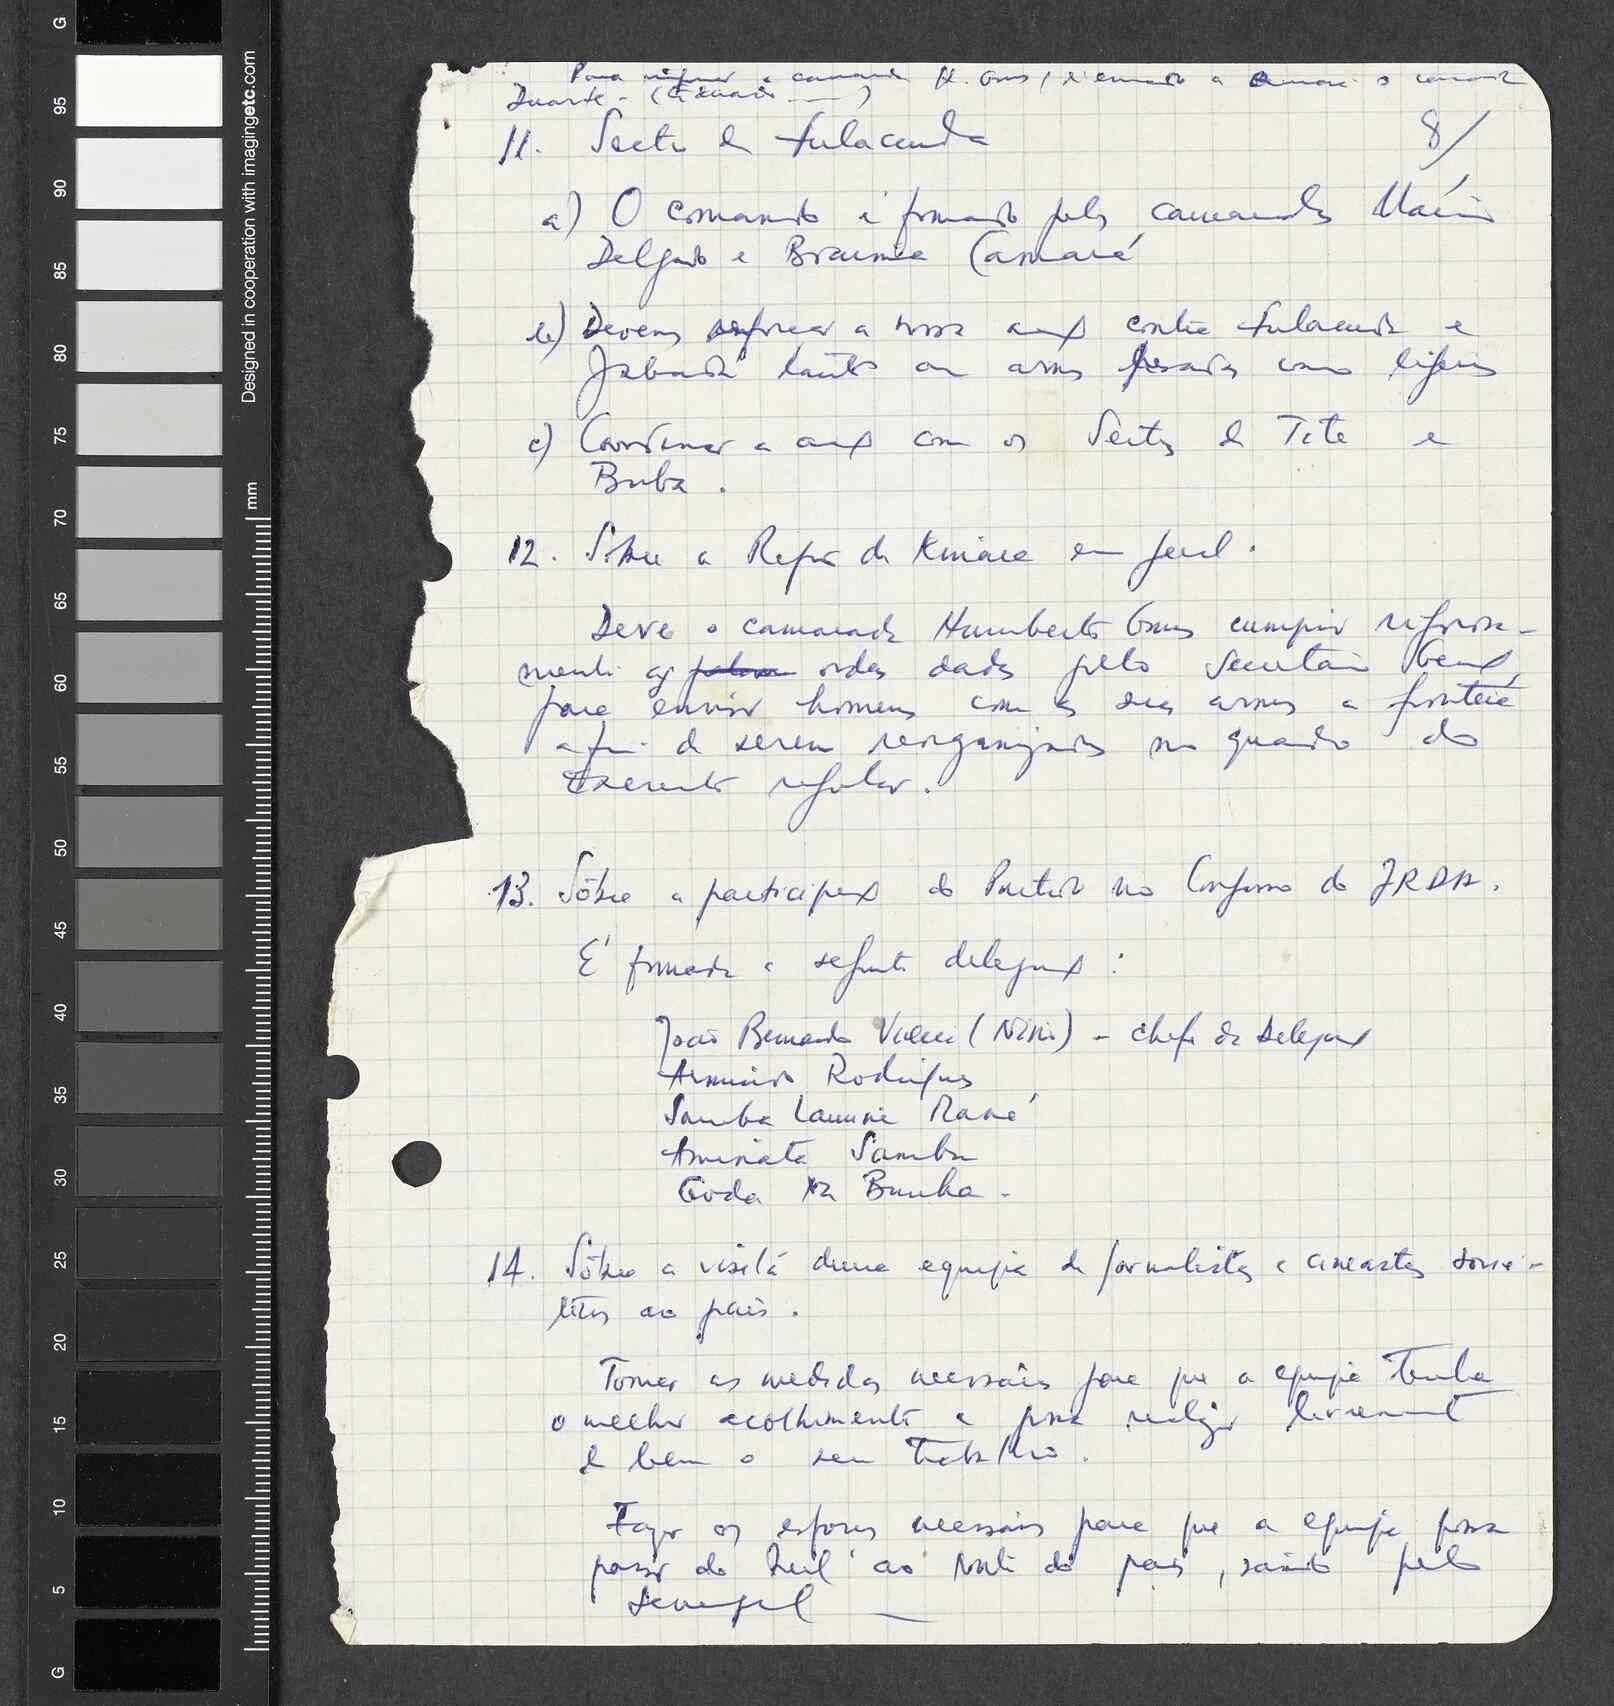 Para o camarada H. Gomes, é enviado a o camarada
Duarte -
8/
11. Sector de Fulacunda
a) O comando é formado pelos camaradas Mário
Delgado e Braima Camará
b) Devem reforçar a nossa acção contra Fulacunda e
Jabadá tanto com armas pesadas como ligeiras
c) Coordenar a acção com os Sectores de Tite e
Buba.
12. Sôbre a Região de Kinara em geral.
Deve o camarada Humberto Gomes cumprir rigorosa-
mente as ordens dadas pelo Secretário Geral
para enviar homens com as suas armas a fronteira
a fim de serem reorganizados no quadro do
Exercito regular.
13. Sôbre a participação do Partido no Congresso do JRDA.
É formada a seguinte delegação:
João Bernardo Vieira (Nino) - chefe da Delegação
Armando Rodrigues
Samba Lamine Mané
Aminata Samba
Goda Na Bunha -
14. Sôbre a visita duma equipa de jornalistas e cineastas sovié-
ticos ao país.
Tomar as medidas necessárias para que a equipa tenha
o melhor acolhimento e possa realizar livremente
e bem o seu trabalho.
Fazer os esforços necessários para que a equipa possa
passar do Sul ao Norte do país, saindo pelo
Senegal —
Designed in cooperation with imagingetc.com
mm
G
95
90
85
80
75
70
65
60
55
50
45
40
35
30
25
20
15
10
5
G